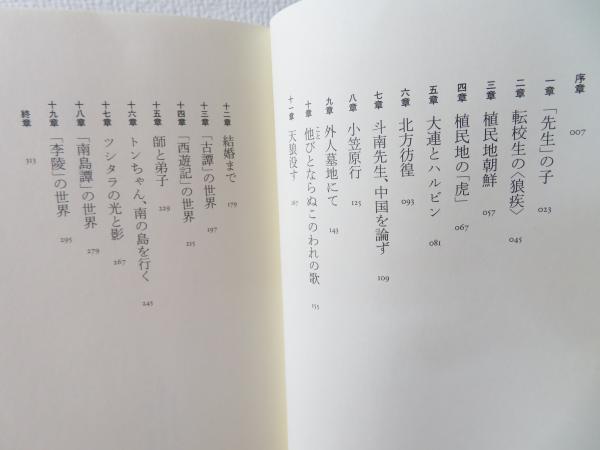 序章 007
一章 「先生」の子 023
二章 転校生の〈狼疾〉 045
三章 植民地朝鮮 057
四章 植民地の「虎」 067
五章 大連とハルビン 081
六章 北方彷徨 093
七章 斗南先生、中国を論ず 109
八章 小笠原行 125
九章 外人墓地にて 143
十章 他びとならぬこのわれの歌 155
十一章 天狼没す 167
十二章 結婚まで 179
十三章 「古譚」の世界 197
十四章 「西遊記」の世界 215
十五章 師と弟子 229
十六章 トンちゃん、南の島を行く 245
十七章 ツシタラの光と影 267
十八章 「南島譚」の世界 279
十九章 「李陵」の世界 295
終章 313